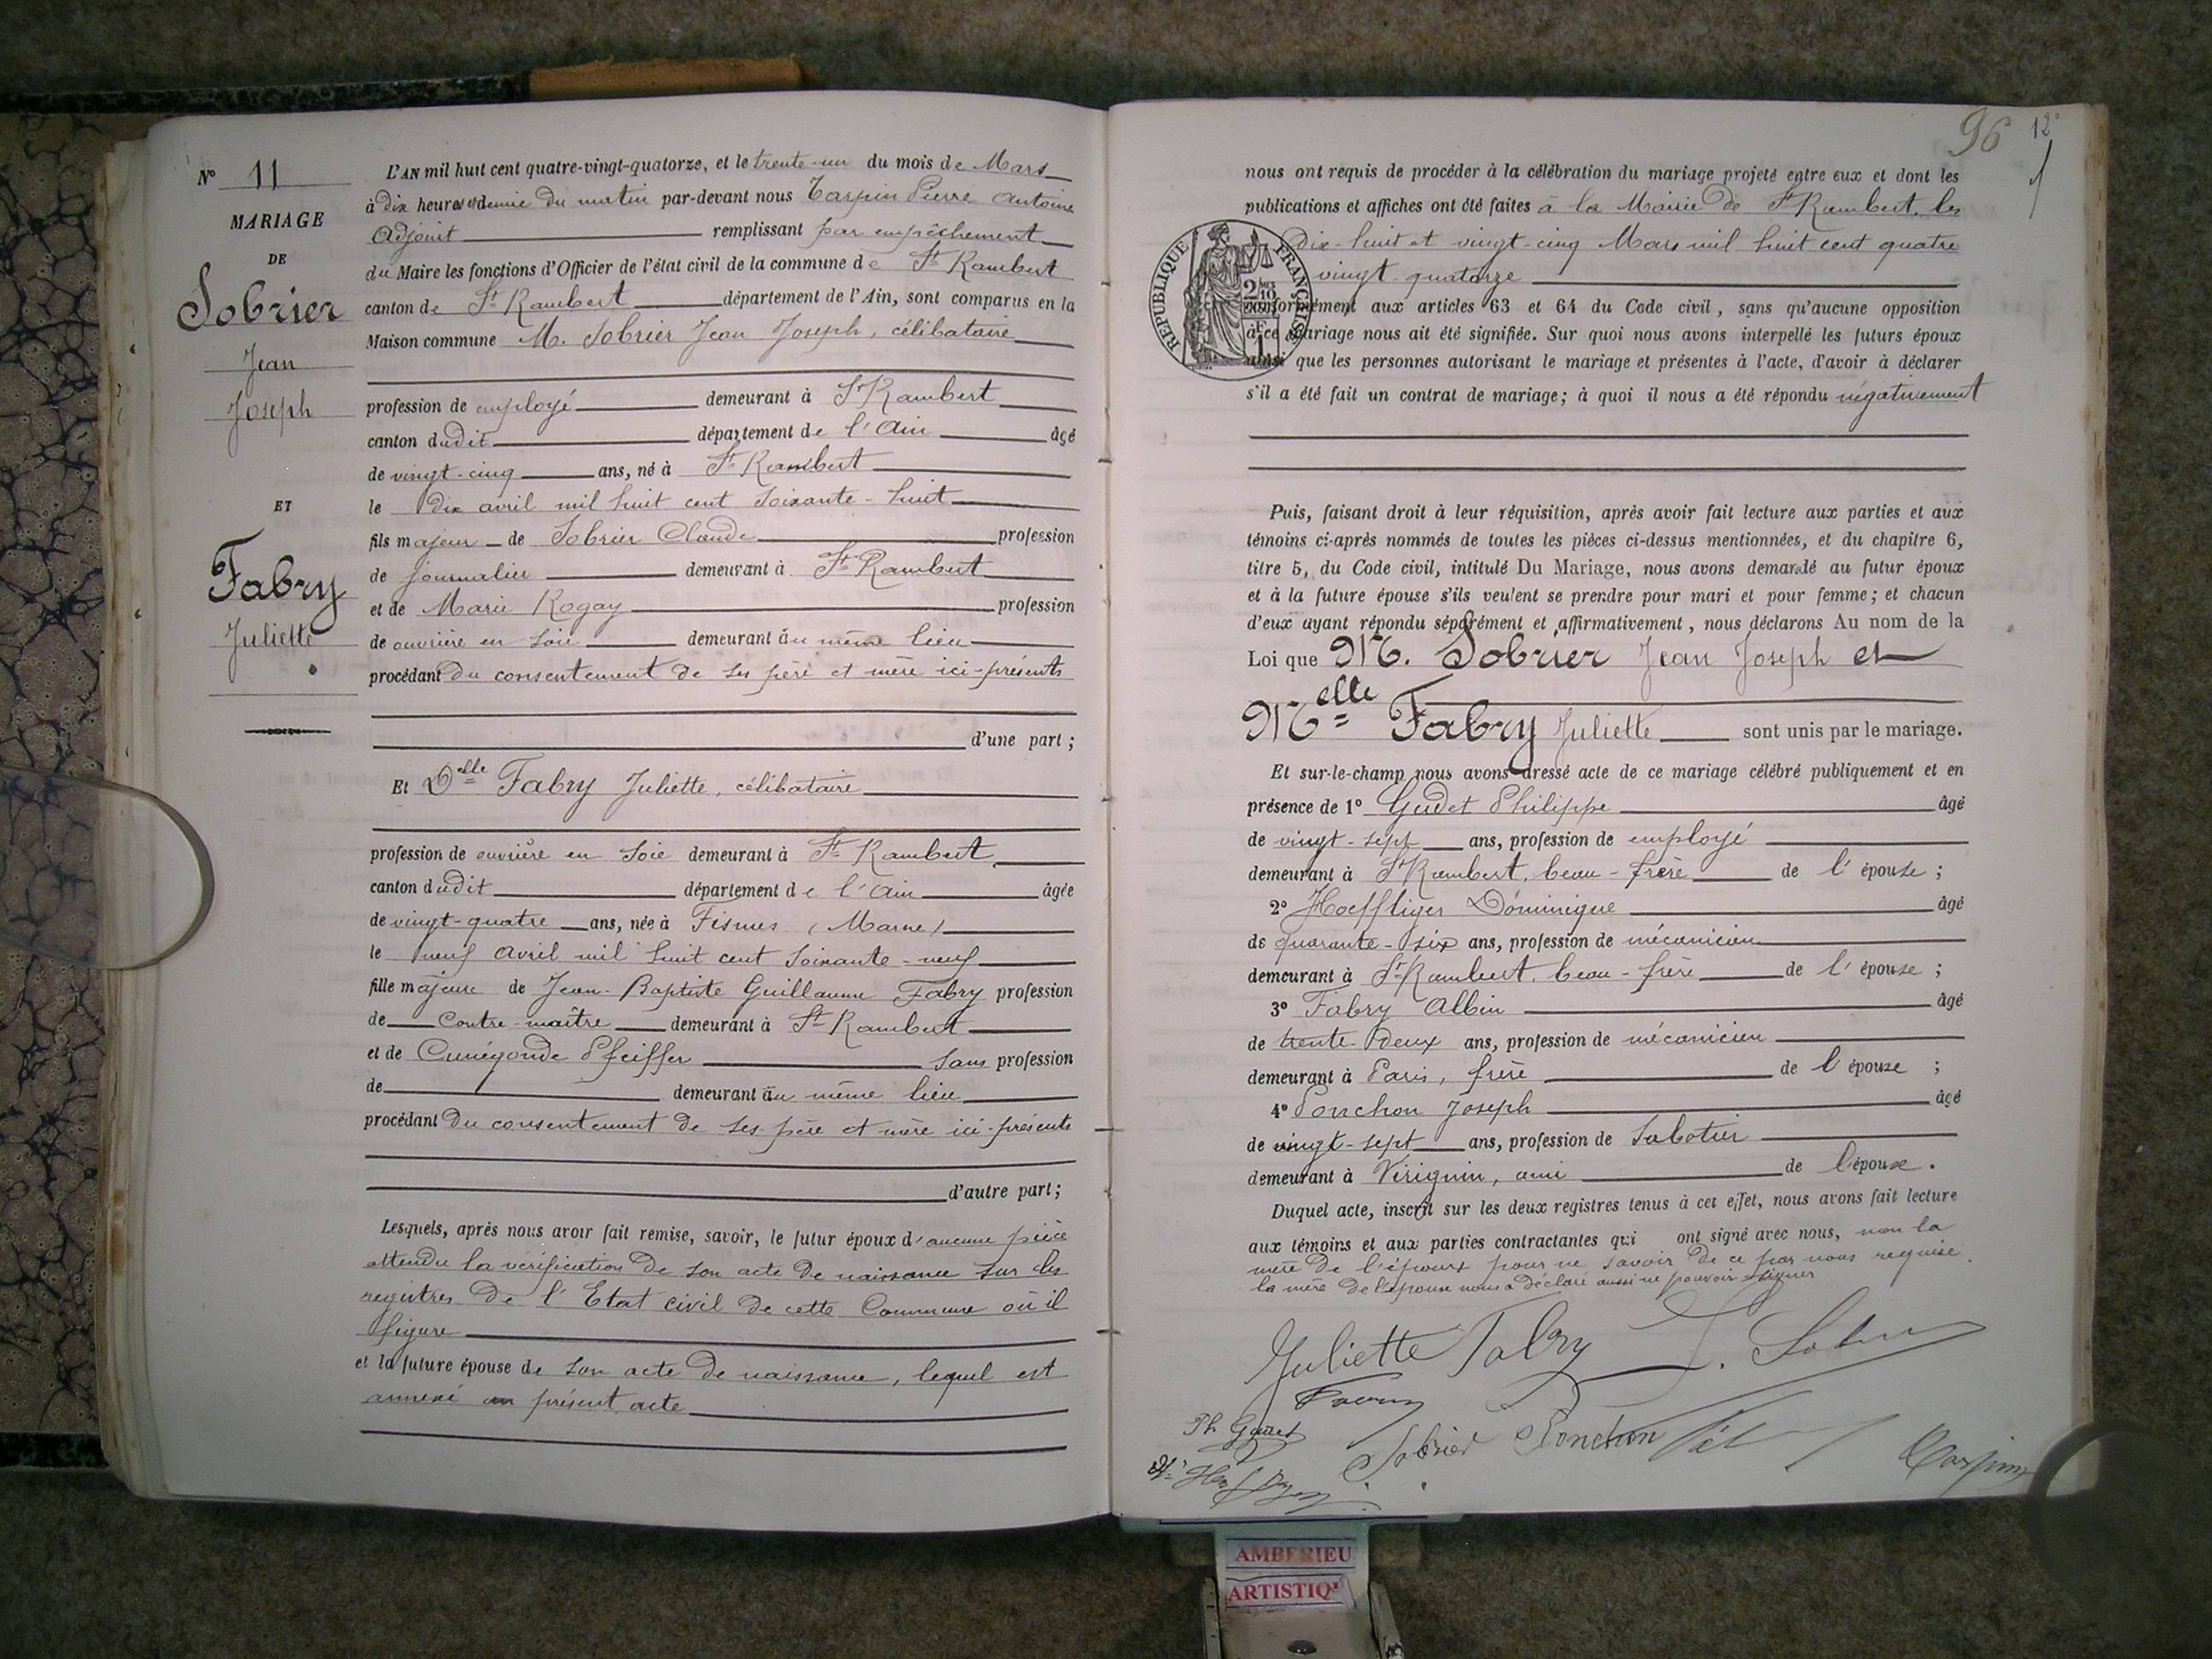 Nº 11
MARIAGE
DE
Sobrier
Jean
Joseph
ET
Fabry
Juliette
L'AN mil huit cent quatre-vingt-quatorze, et le trente-un du mois de Mars
à dix heures et demie du matin par-devant nous Tarpin Pierre Antoine
Adjoint remplissant par empêchement
du Maire les fonctions d'Officier de l'état civil de la commune de St Rambert
canton de St Rambert département de l'Ain, sont comparus en la
Maison commune M. Sobrier Jean Joseph, célibataire
profession de employé demeurant à St Rambert
canton dudit département de l'Ain âgé
de vingt-cinq ans, né à St Rambert
le dix avril mil huit cent soixante-huit
fils majeur de Sobrier Claude profession
de journalier demeurant à St Rambert
et de Marie Rogay profession
de ouvrière en soie demeurant au même lieu
procédant du consentement de ses père et mère ici-présents
d'une part ;
Et Delle Fabry Juliette, célibataire
profession de ouvrière en soie demeurant à St Rambert
canton dudit département de l'Ain âgée
de vingt-quatre ans, née à Fismes (Marne)
le neuf avril mil huit cent soixante-neuf
fille majeure de Jean-Baptiste Guillaume Fabry profession
de Contre-maître demeurant à St Rambert
et de Cunégonde Pfeiffer sans profession
de demeurant au même lieu
procédant du consentement de ses père et mère ici-présents
d'autre part ;
Lesquels, après nous avoir fait remise, savoir, le futur époux d'aucune pièce
attendu la vérification de son acte de naissance sur les
registres de l'Etat civil de cette Commune où il
figure
et la future épouse de son acte de naissance, lequel est
annexé au présent acte
96 12e
nous ont requis de procéder à la célébration du mariage projeté entre eux et dont les
publications et affiches ont été faites à la Mairie de St Rambert, les
dix-huit et vingt-cinq Mars mil huit cent quatre
vingt-quatorze
RÉPUBLIQUE FRANÇAISE
conformément aux articles 63 et 64 du Code civil, sans qu'aucune opposition
à ce mariage nous ait été signifiée. Sur quoi nous avons interpellé les futurs époux
ainsi que les personnes autorisant le mariage et présentes à l'acte, d'avoir à déclarer
s'il a été fait un contrat de mariage ; à quoi il nous a été répondu négativement
Puis, faisant droit à leur réquisition, après avoir fait lecture aux parties et aux
témoins ci-après nommés de toutes les pièces ci-dessus mentionnées, et du chapitre 6,
titre 5, du Code civil, intitulé Du Mariage, nous avons demandé au futur époux
et à la future épouse s'ils veulent se prendre pour mari et pour femme ; et chacun
d'eux ayant répondu séparément et affirmativement, nous déclarons Au nom de la
Loi que M. Sobrier Jean Joseph et
Melle Fabry Juliette sont unis par le mariage.
Et sur-le-champ nous avons dressé acte de ce mariage célébré publiquement et en
présence de 1º Gudet Philippe âgé
de vingt-sept ans, profession de employé
demeurant à St Rambert, beau-frère de l'épouse ;
2º Hoeffliger Dominique âgé
de quarante-six ans, profession de mécanicien
demeurant à St Rambert, beau-frère de l'épouse ;
3º Fabry Albin âgé
de trente-deux ans, profession de mécanicien
demeurant à Paris, frère de l'épouse ;
4º Ponchon Joseph âgé
de vingt-sept ans, profession de Sabotier
demeurant à Virignin, ami de l'épouse.
Duquel acte, inscrit sur les deux registres tenus à cet effet, nous avons fait lecture
aux témoins et aux parties contractantes qui ont signé avec nous, non la
mère de l'époux pour ne savoir de ce par nous requise
la mère de l'épouse nous a déclaré aussi ne pouvoir signer
Juliette Fabry J. Sobrier
Ph Gudet Sobrier Ponchon Tarpin
AMBERIEU
ARTISTIQ